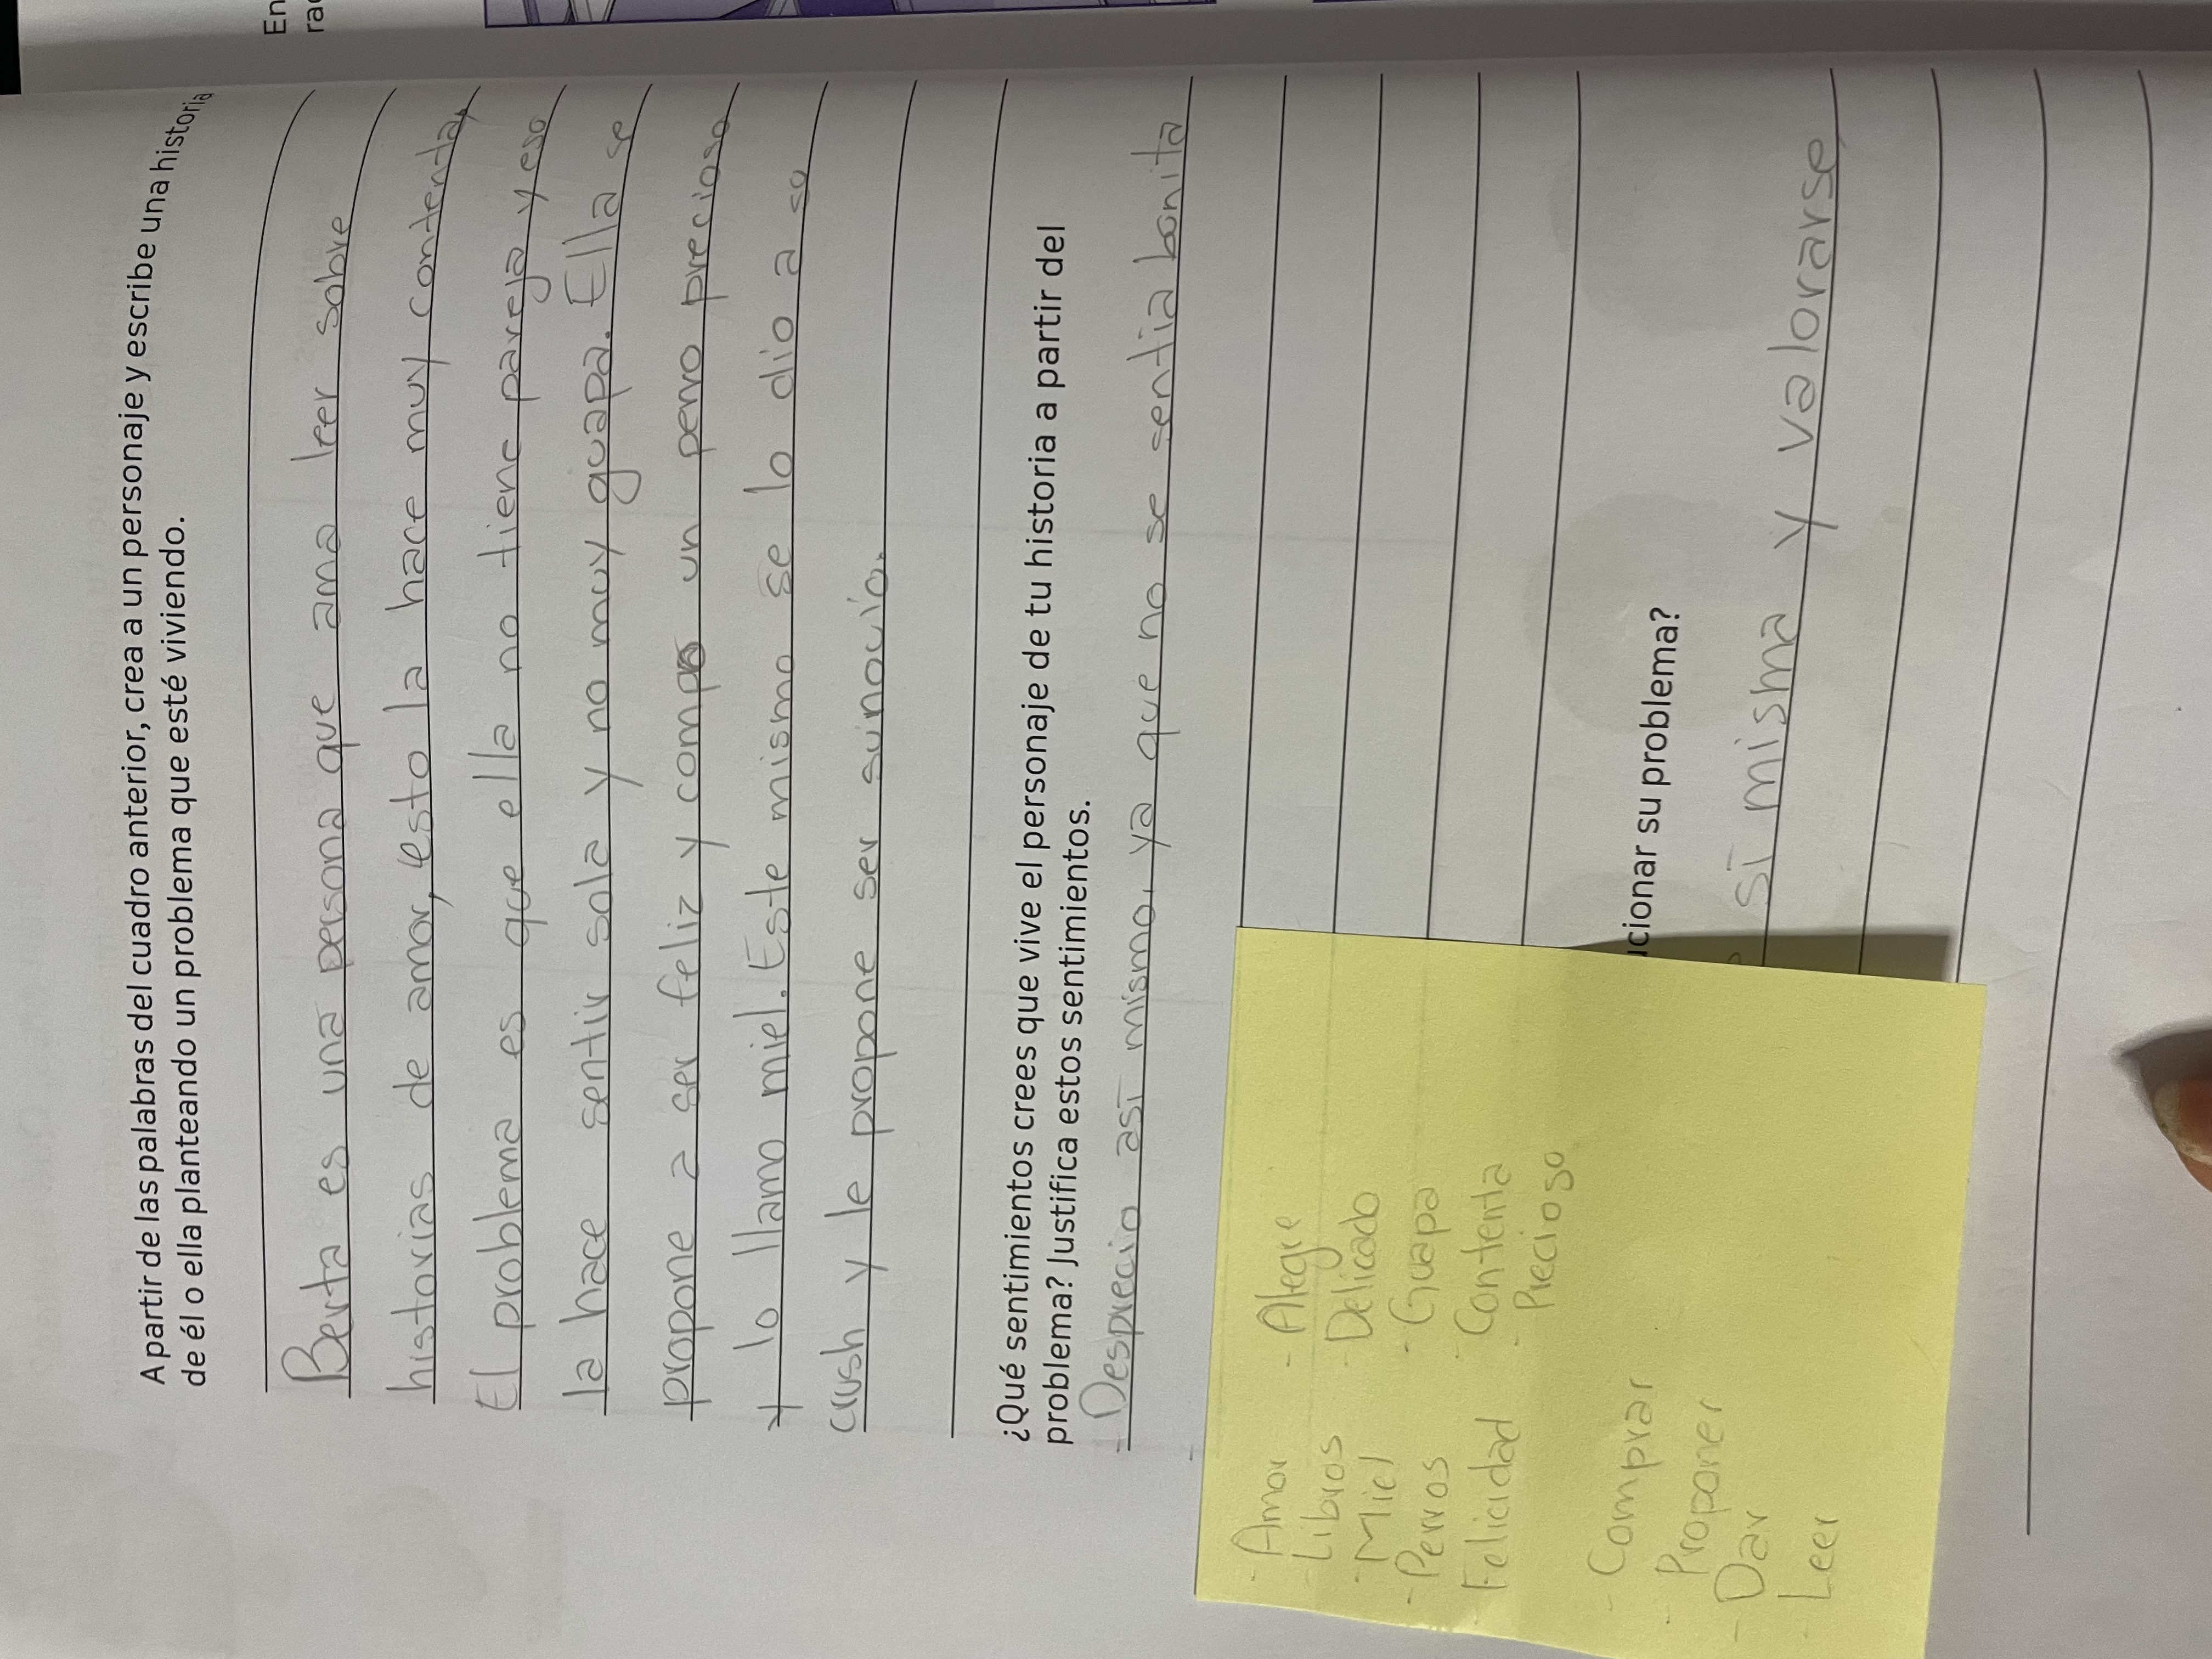 A partir de las palabras del cuadro anterior, crea a un personaje y escribe una historia
de él o ella planteando un problema que esté viviendo.
Berta es una persona que ama leer sobre
historias de amor, esto la hace muy contenta,
El problema es que ella no tiene pareja y eso
la hace sentir sola y no muy guapa. Ella se
propone a ser feliz y compro un perro precioso
y lo llamo miel. Este mismo se lo dio a so
crush y le propone ser su novio.
¿Qué sentimientos crees que vive el personaje de tu historia a partir del
problema? Justifica estos sentimientos.
- Desprecio así mismo, ya que no se sentia bonita
ucionar su problema?
sí misma y valorarse
- Amor
- Libros
- Miel
- Perros
- Felicidad
- Alegre
- Delicado
- Guapa
- Contenta
- Precioso
- Comprar
- Proponer
- Dar
- Leer
En